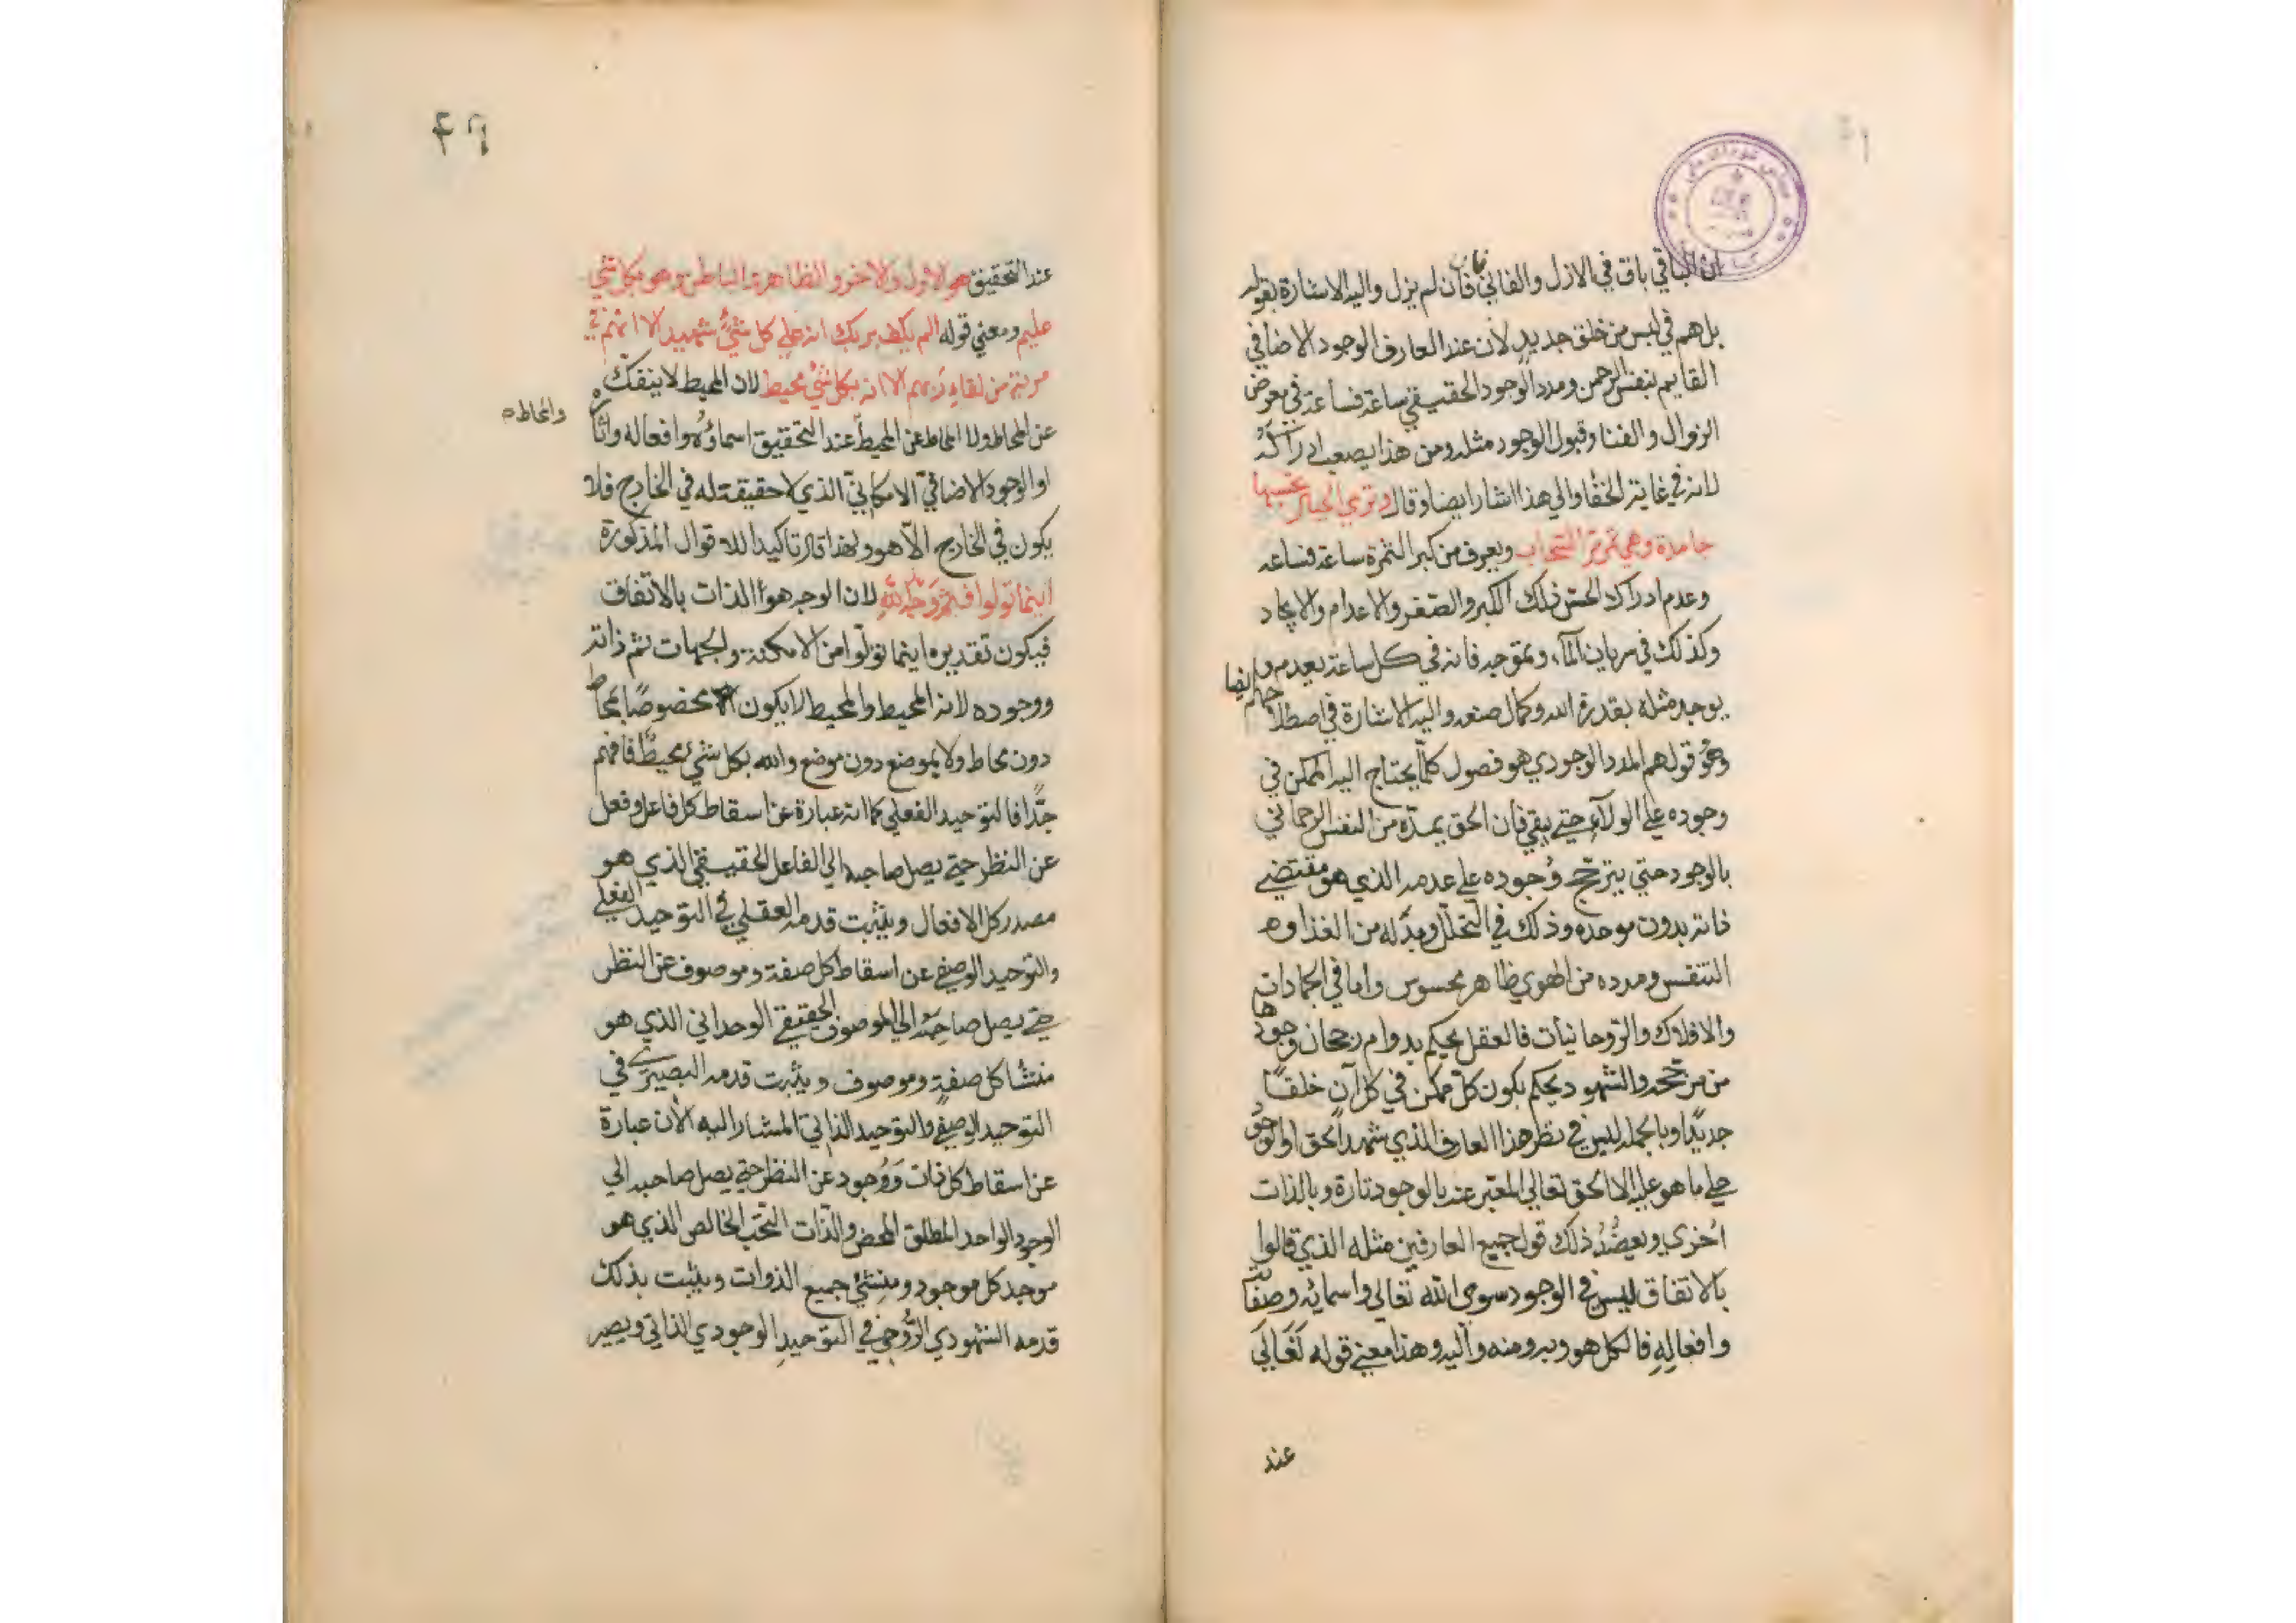 ان الباقي باق في الازل والفاني فان لم يزل واليه الاشارة بقوله
بل هم في لبس من خلق جديد لان عند العارف الوجود الاضافي
القايم بنفس الرحمن ومدد الوجود الحقيقي ساعة فساعة في معرض
الزوال والفنا وقبول الوجود مثله ومن هذا يصعب ادراكه
لانه في غاية الخفا والي هذا اشار ايضا وقال وتري الجبال تحسبها
جامدة وهي تمر مر السحاب ويعرف من كبر الثمرة ساعة فساعة
وعدم ادراك الحس ذلك الكبر والصغر والاعدام والايجاد
وكذلك في سريان المآء وتموجه فانه في كل ساعة يعدم و
يوجد مثله بقدرة الله وكمال صنعه واليه الاشارة في اصطلاحهم ايضا
وهو قولهم المدد الوجودي هو فصول كلما يحتاج اليه الممكن في
وجوده علي الولآء حتي يبقي فان الحق يمده من النفس الرحماني
بالوجود حتي يترجح وجوده علي عدمه الذي هو مقتضي
ذاته بدون موجده وذلك في التحلل وبدله من الغذا و
التنفس ومدده من الهوي ظاهر محسوس واما في الجمادات
والافلاك والروحانيات فالعقل يحكم بدوام رجحان وجودها
من مرجحه والشهود يحكم بكون كل ممكن في كل آن خلقًا
جديدًا وبالجملة ليس في نظر هذا العارف الذي شهد الحق او الوجود
علي ما هو عليه الا الحق تعالي المعبر عنه بالوجود تارة وبالذات
اخري ويعضد ذلك قول جميع العارفين مثله الذي قالوا
بالاتفاق ليس في الوجود سوي الله تعالي واسمائه وصفاته
وافعاله فالكل هو وبه ومنه واليه وهذا معني قوله تعالي
عند
٤٦
عند التحقيق هو الاول والاخر والظاهر والباطن وهو بكل شئ
عليم ومعني قوله الم يكف بربك انه علي كل شئ شهيد الا انهم في
مرية من لقاء ربهم الا انه بكل شئ محيط لان المحيط لا ينفك
عن المحاط ولا المحاط عن المحيط عند التحقيق اسماؤه وافعاله واثاره
والمحاط
او الوجود الاضافي الامكاني الذي لا حقيقة له في الخارج فلا
يكون في الخارج الا هو ولهذا قال تاكيدا للاقوال المذكورة
اينما تولوا فثم وجه الله لان الوجه هو الذات بالاتفاق
فيكون تقديره اينما تولوا من الامكنة والجهات ثم ذاته
ووجوده لانه المحيط والمحيط لا يكون مخصوصًا بمحاط
دون محاط ولا بموضع دون موضع والله بكل شئ محيط فافهم
جدًا فالتوحيد الفعلي كما انه عبارة عن اسقاط كل فاعل وفعل
عن النظر حتي يصل صاحبه الي الفاعل الحقيقي الذي هو
مصدر كل الافعال ويثبت قدمه العقلي في التوحيد الفعلي
والتوحيد الوصفي عن اسقاط كل صفة وموصوف عن النظر
حتي يصل صاحبه الي الموصوف الحقيقي الوحداني الذي هو
منشا كل صفة وموصوف ويثبت قدمه البصيري في
التوحيد الوصفي والتوحيد الذاتي المشار اليه الان عبارة
عن اسقاط كل ذات ووجود عن النظر حتي يصل صاحبه الي
الوجود الواحد المطلق المحض والذات البحت الخالص الذي هو
موجد كل موجود ومنشئ جميع الذوات ويثبت بذلك
قدمه الشهودي الروحي في التوحيد الوجودي الذاتي ويصير